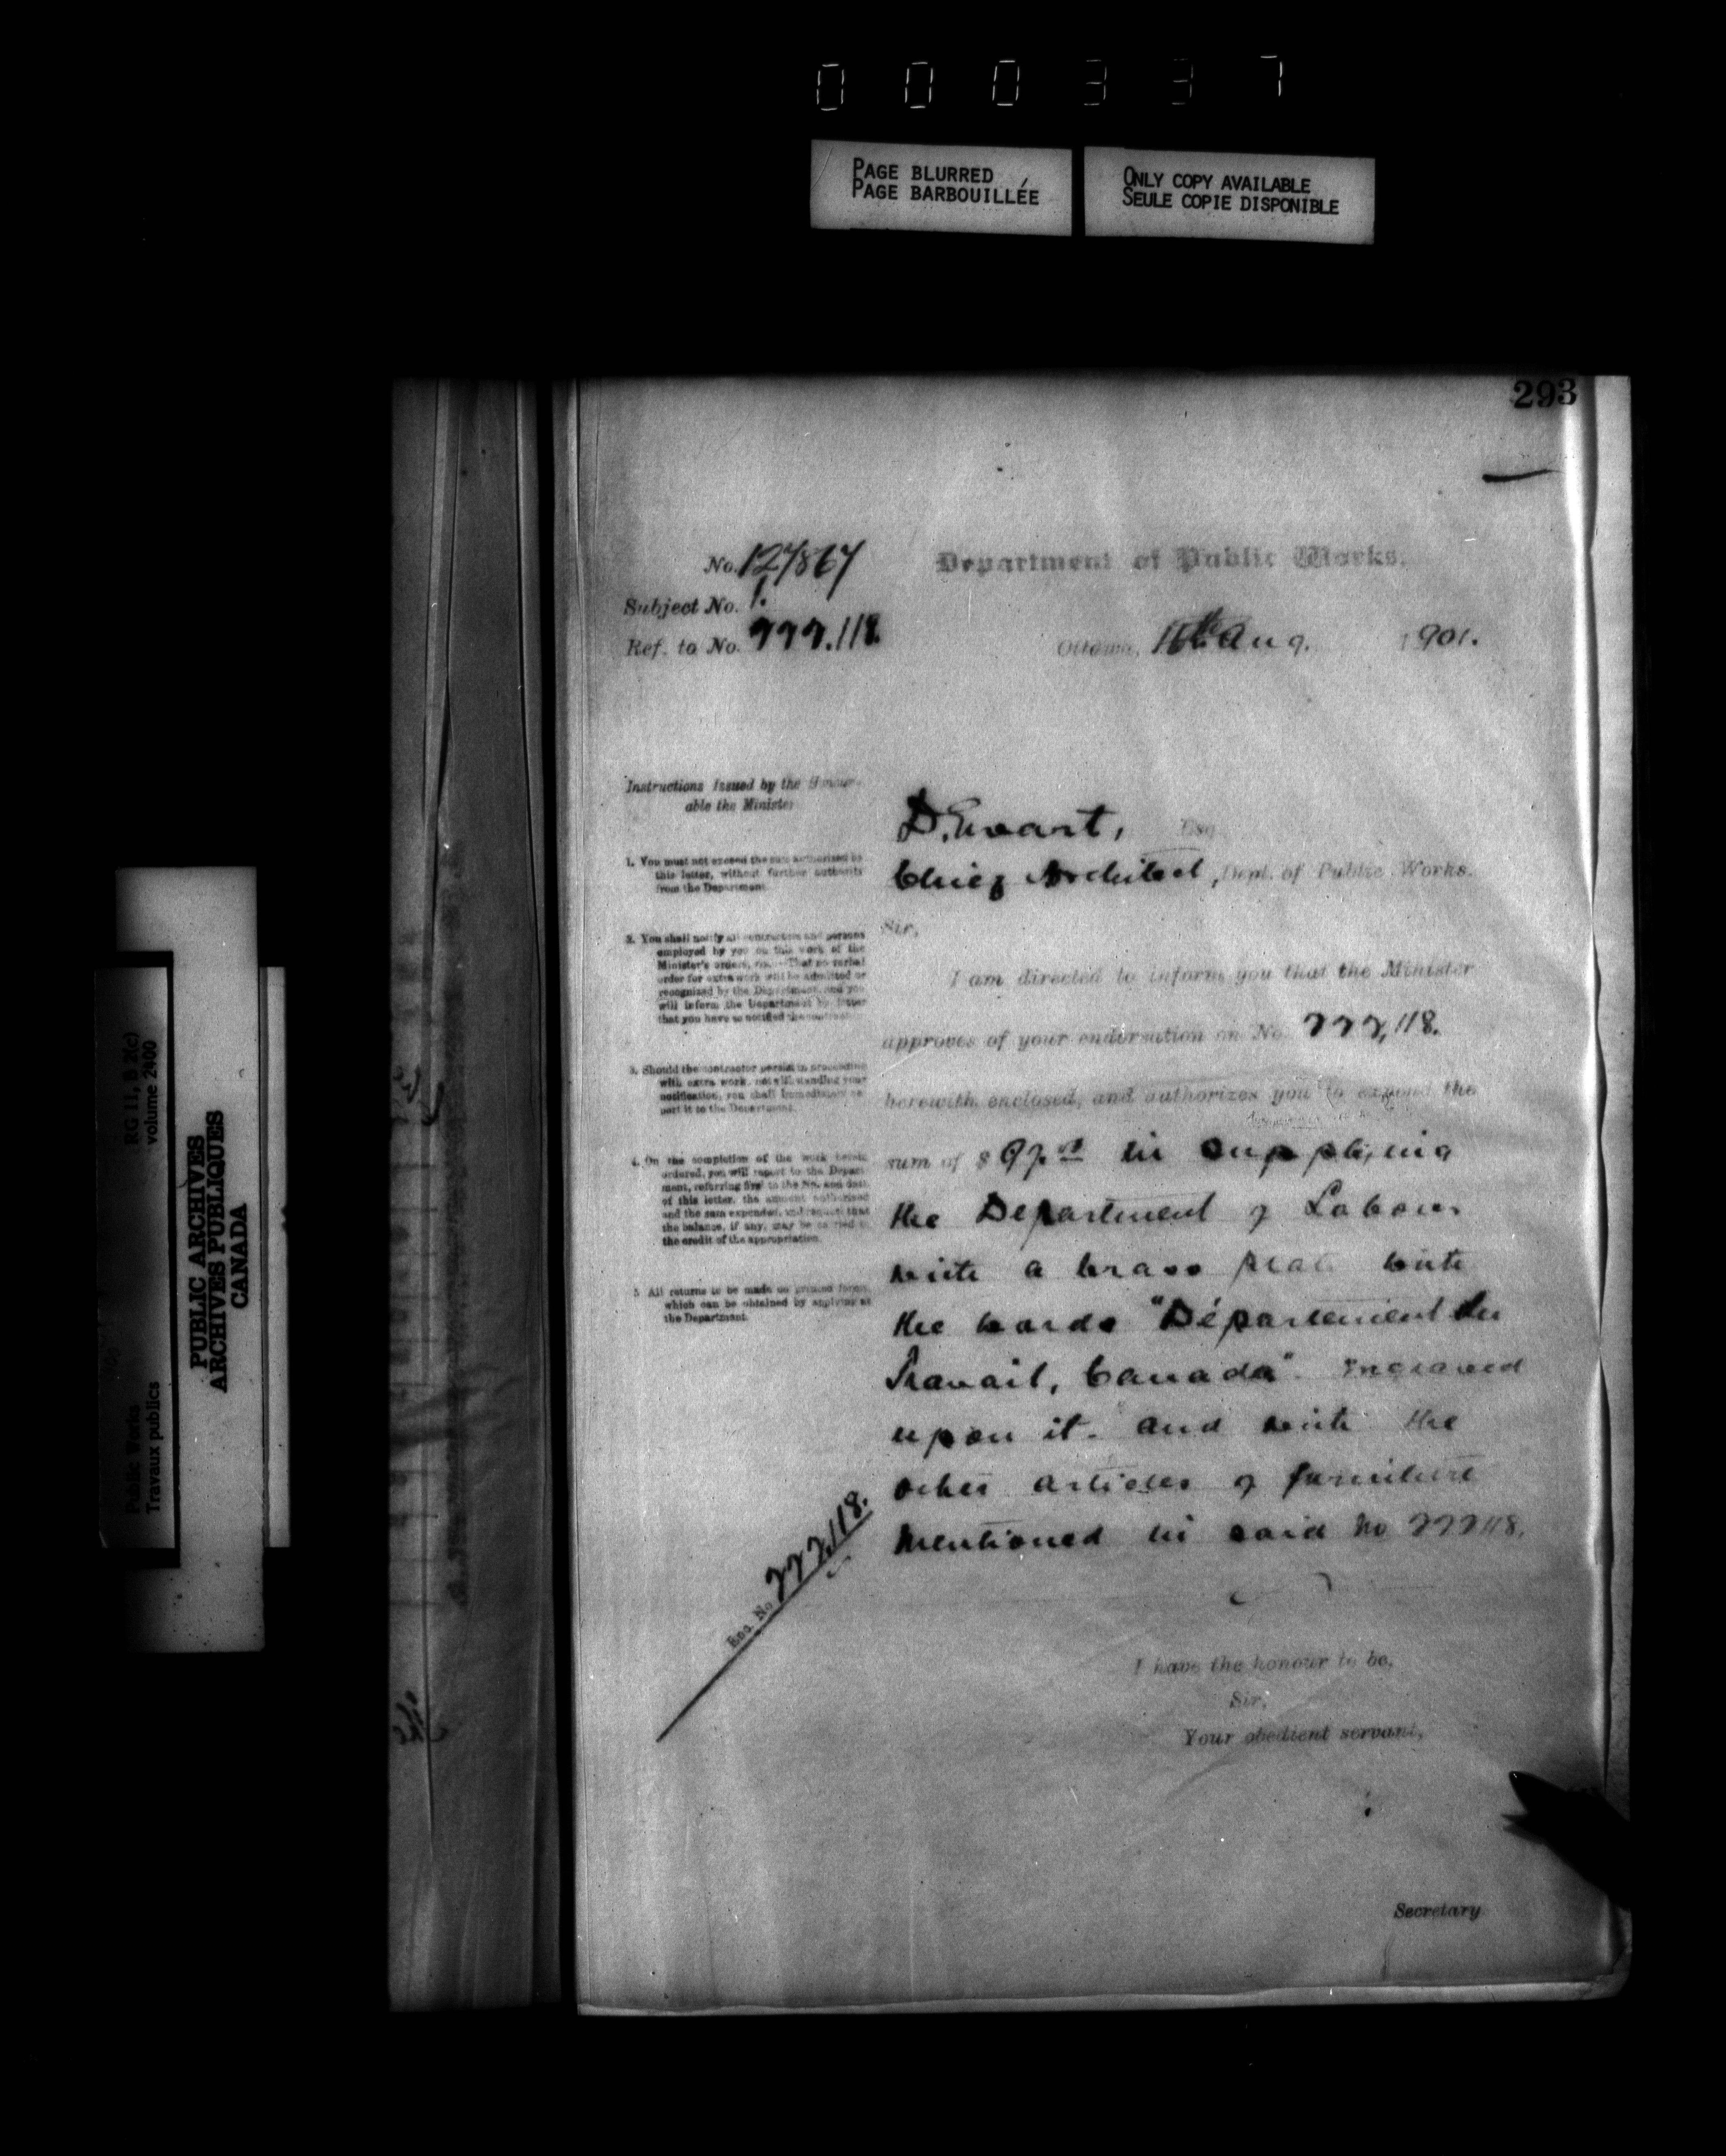 000337
PAGE BLURRED
PAGE BARBOUILLÉE
ONLY COPY AVAILABLE
SEULE COPIE DISPONIBLE
293
Department of Public Works.
Subject No. 1.
Ref. to No. 777.118.
Ottawa, Aug. 1901.
Instructions Issued by the Honour-
able the Minister
1. You must not exceed the sum authorised by
this letter, without further authority
from the Department.
2. You shall notify all contractors and persons
employed by you on this work of the
Minister's orders, viz.:—That no verbal
order for extra work will be admitted or
recognized by the Department, and you
will inform the Department by letter
that you have so notified the contractor
3. Should the contractor persist in proceeding
with extra work, notwithstanding your
notification, you shall immediately re-
port it to the Department.
4. On the completion of the work herein
ordered, you will report to the Depart-
ment, referring first to the No. and date
of this letter, the amount authorised
and the sum expended, and request that
the balance, if any, may be carried to
the credit of the appropriation.
5 All returns to be made on printed forms,
which can be obtained by applying at
the Department.
D. Ewart, Esq
Chief Architect, Dept. of Public Works.
Sir,
I am directed to inform you that the Minister
approves of your endorsation on No. 777,118.
herewith enclosed, and authorizes you to expend the
sum of $ in supplying
the Department of Labour
with a brass seal with
the words "Département du
Travail, Canada". engraved
upon it. and with the
other articles of furniture
mentioned in said No 777118.
Enc. No 777,118.
I have the honour to be,
Sir,
Your obedient servant,
Secretary
PUBLIC ARCHIVES
ARCHIVES PUBLIQUES
CANADA
Public Works
Travaux publics
RG 11, B 2(c)
volume 2400